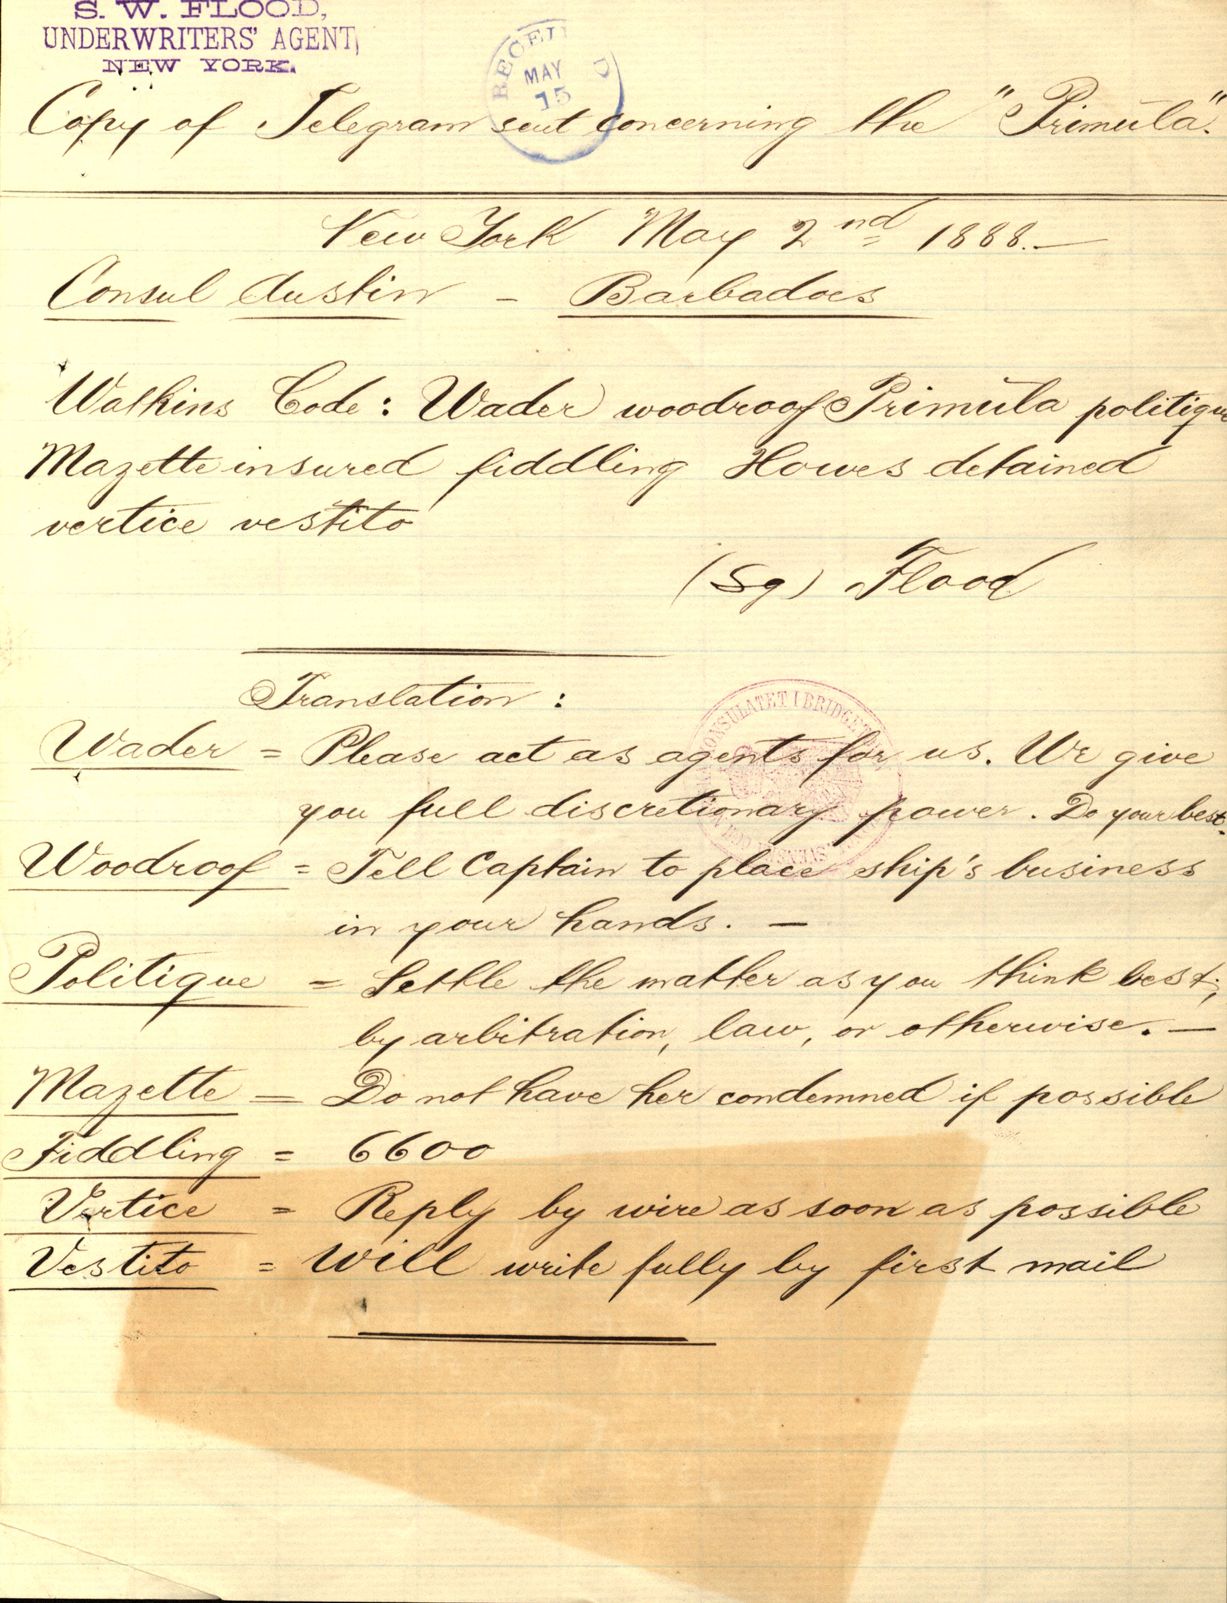 S. W. FLOOD,
UNDERWRITERS' AGENT,
NEW YORK.
RECEIVED
MAY
15
Copy of Telegram sent concerning the "Primula".
New York May 2nd 1888.—
Consul Austin – Barbadoes
Watkins Code: Wader woodroof Primula politique
Mazette insured fiddling Howes detained
vertice vestito
(Sg) Flood
Translation:
Wader = Please act as agents for us. We give
you full discretionary power. Do your best.
Woodroof = Tell Captain to place ship's business
in your hands. —
Politique = Settle the matter as you think best,
by arbitration, law, or otherwise. —
Mazette = Do not have her condemned if possible
Fiddling = 6600
Vertice = Reply by wire as soon as possible
Vestito = Will write fully by first mail
CONSULATET I BRIDGE